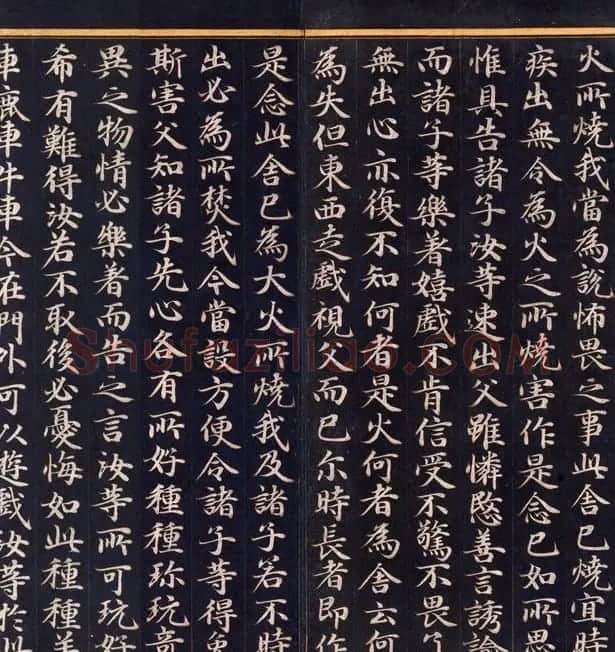 火所燒我當為說怖畏之事此舍已燒宜時
疾出無令為火之所燒害作是念已如所思
惟具告諸子汝等速出父雖憐愍善言誘諭
而諸子等樂著嬉戲不肯信受不驚不畏了
無出心亦復不知何者是火何者為舍云何
為失但東西走戲視父而已尔時長者即作
是念此舍已為大火所燒我及諸子若不時
出必為所焚我今當設方便令諸子等得免
斯害父知諸子先心各有所好種種珎玩奇
異之物情必樂著而告之言汝等所可玩好
希有難得汝若不取後必憂悔如此種種羊
車鹿車牛車今在門外可以遊戲汝等於此
Shufaziliao.COM